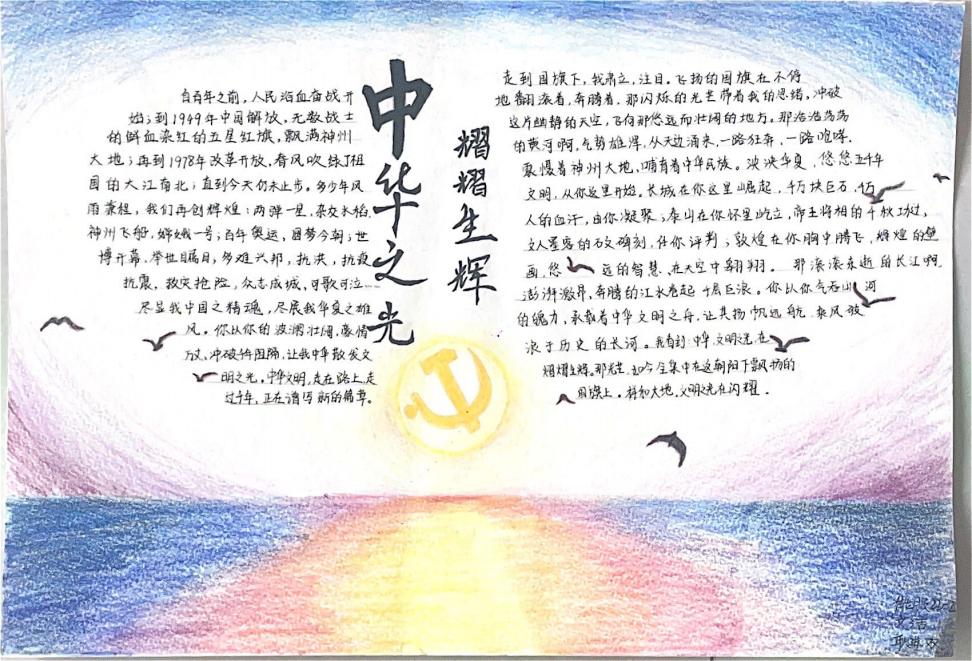 中华之光
耀耀生辉
自百年之前，人民浴血奋战开
始；到1949年中国解放，无数战士
的鲜血染红的五星红旗，飘满神州
大地；再到1978年改革开放，春风吹绿了祖
国的大江南北；直到今天仍未止步。多少年风
雨兼程，我们再创辉煌：两弹一星，杂交水稻，
神州飞船，嫦娥一号；百年奥运，圆梦今朝；世
博开幕，举世瞩目，多难兴邦，抗洪，抗疫
抗震，救灾抢险，众志成城，可歌可泣——
尽显我中国之精魂，尽展我华夏之雄
风。你以你的波澜壮阔，豪情
万仗，冲破 阻隔，让我中华散发文
明之光，中华文明，走在路上，走
过千年，正在谱写新的篇章。
走到国旗下，我肃立，注目。飞扬的国旗在不停
地翻滚着，奔腾着，那闪烁的光芒带着我的思绪，冲破
这片幽静的天空，飞向那悠远而壮阔的地方。那浩浩荡荡
的黄河啊，气势雄浑，从天边涌来，一路狂奔，一路咆哮，
震慑着神州大地，哺育着中华民族。泱泱华夏，悠悠五千年
文明，从你这里开始。长城在你这里崛起，千万块巨石，千万
人的血汗，由你凝聚；泰山在你怀里屹立，帝王将相的千秋功过，
文人墨客的石文碑刻，任你评判；敦煌在你胸中腾飞，辉煌的壁
画，悠 远的智慧，在天空中翱翔。那滚滚东逝的长江啊，
澎湃激昂，奔腾的江水卷起千层巨浪。你以你气吞山河
的魄力，承载着中华文明之舟，让其扬帆远航，乘风破
浪于历史的长河。我看到：中华文明之光在
熠熠生辉。那光芒，如今全集中在这朝阳下飘扬的
国旗上。祥和大地，文明之光在闪耀。